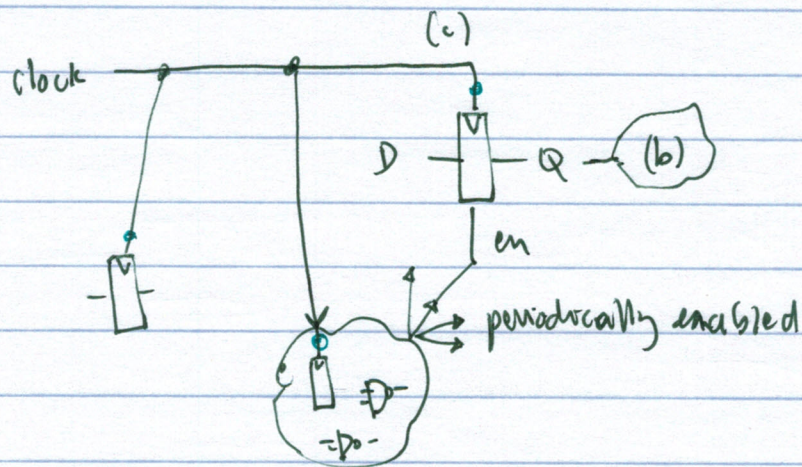 (c)
clock
D
Q
(b)
en
periodically enabled